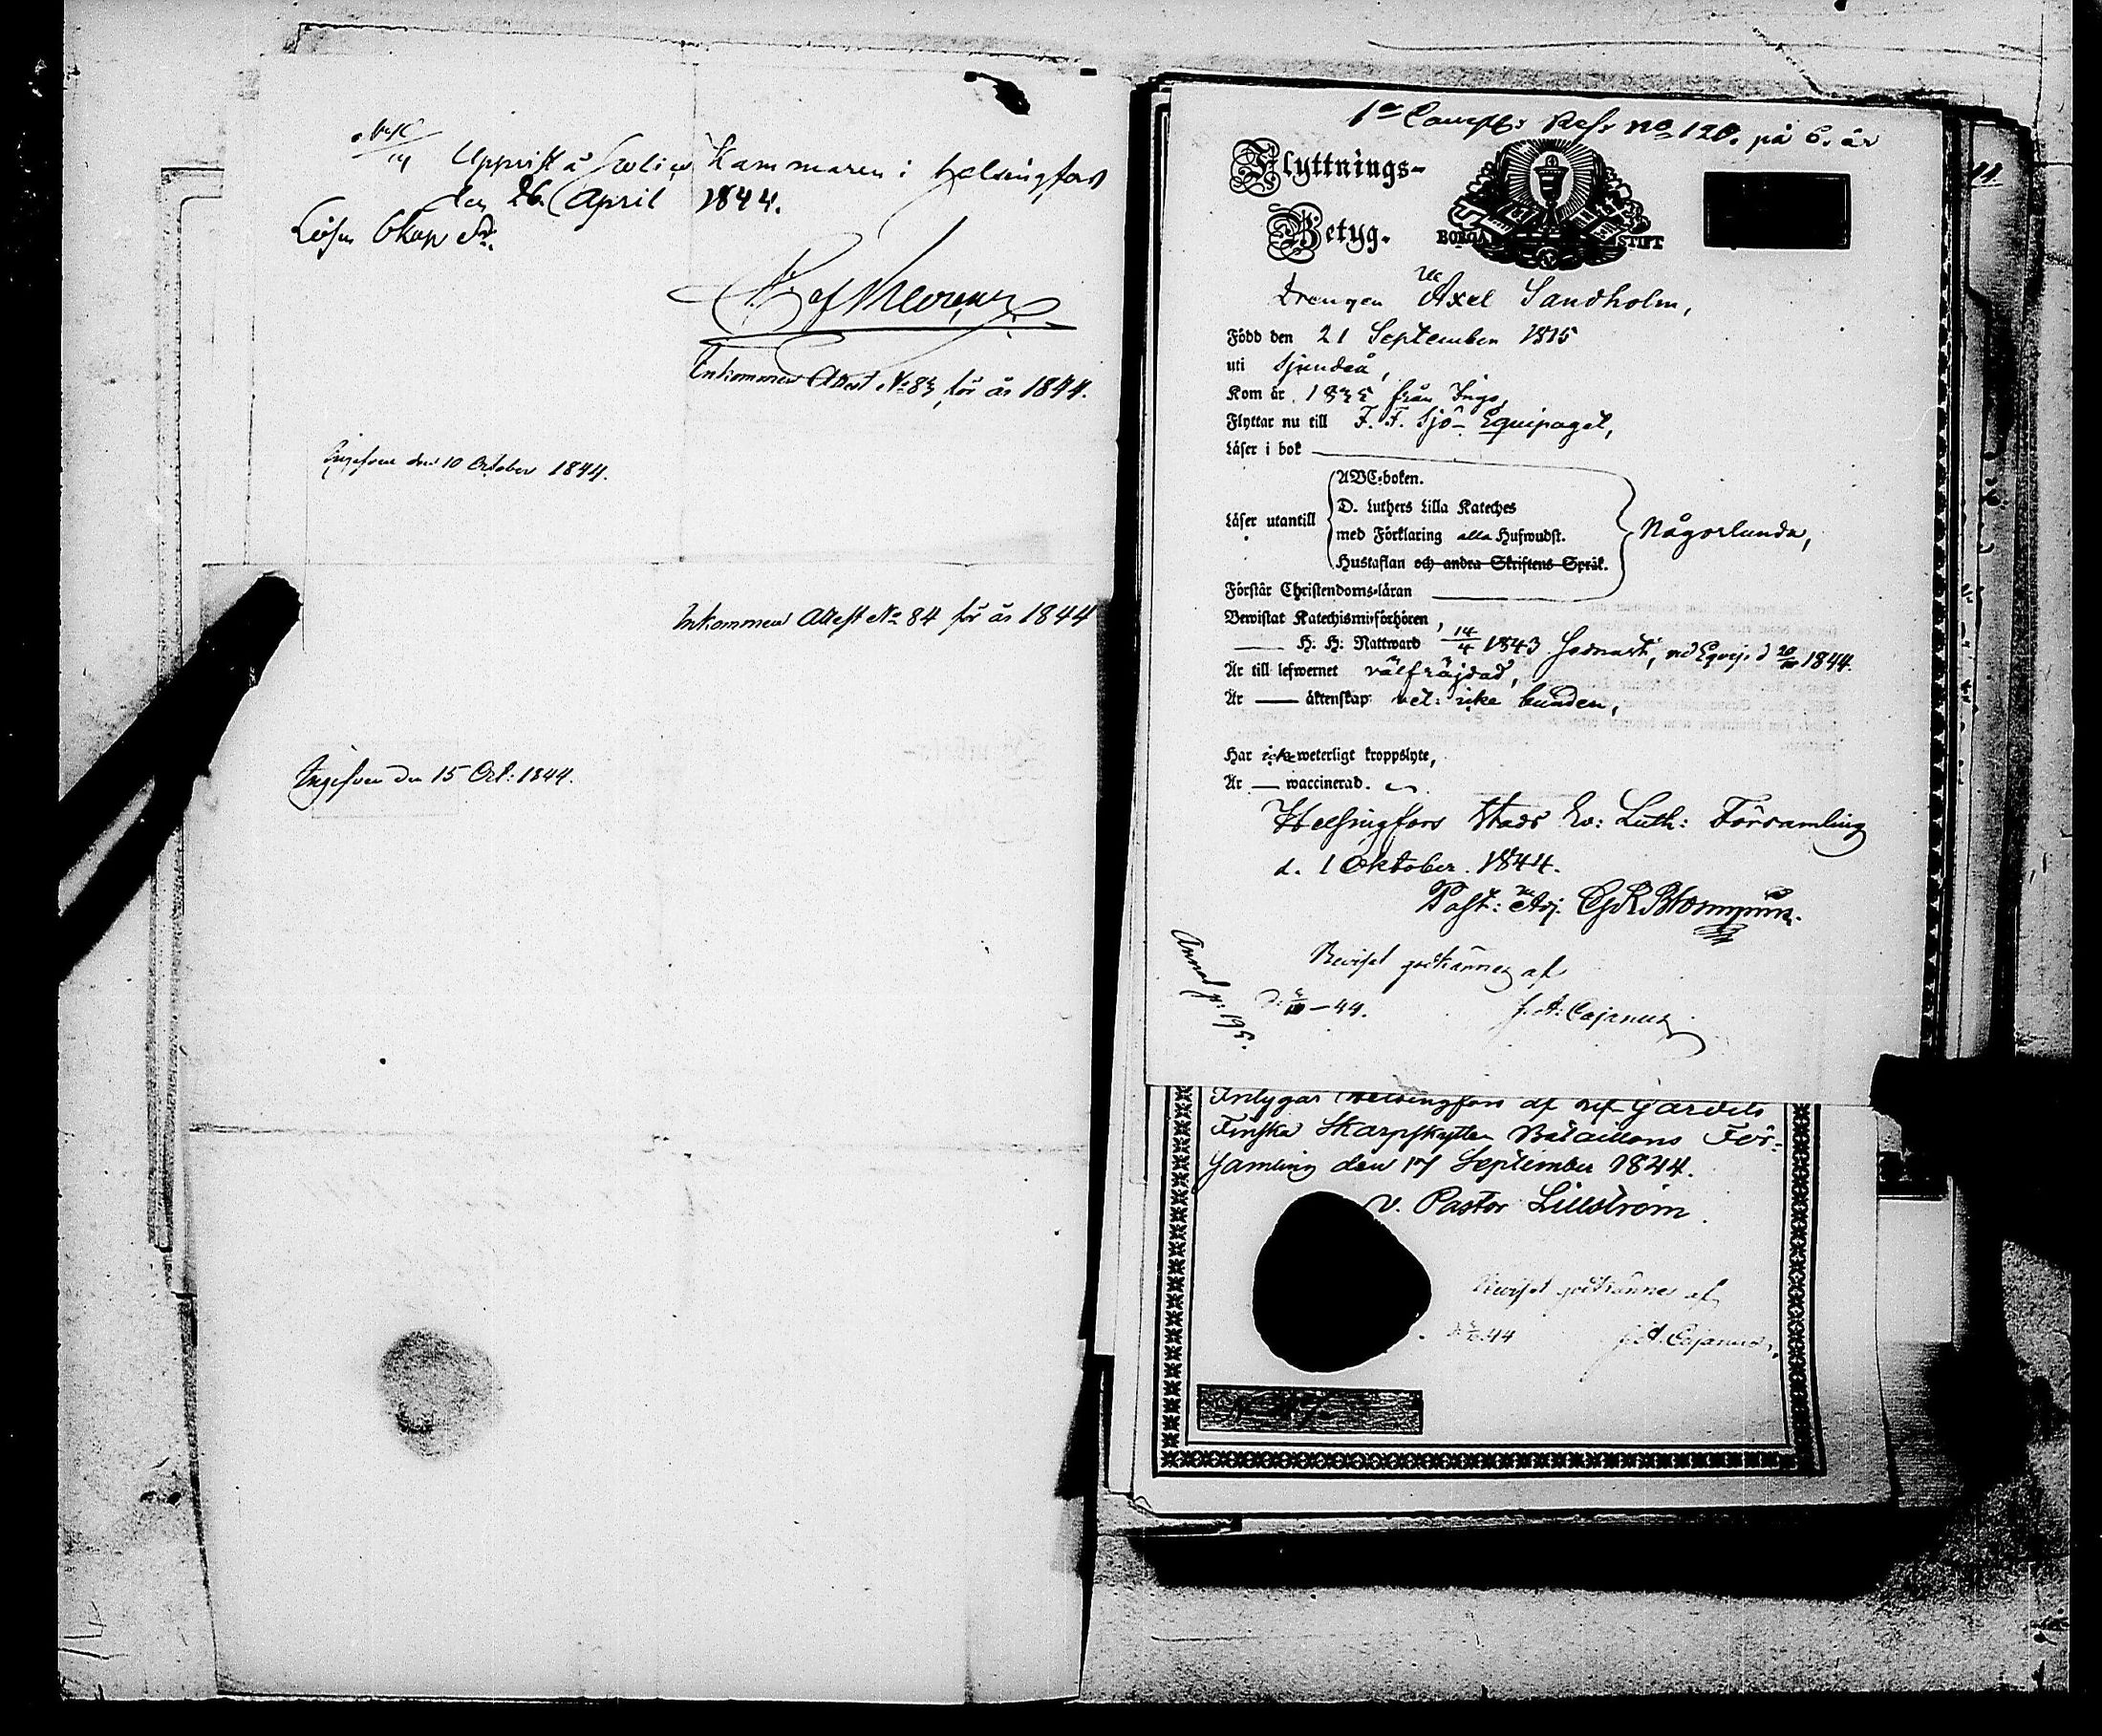 Uppvist å Police Kammaren i Helsingfors
den 26. April 1844.
Lösen 6 kop Sr.
Inkommen Attest No 83 för år 1844.
Ingifven den 10 October 1844.
Inkommen Attest No 84 för år 1844
Ingifven den 15 Oct: 1844.
11
1a Comp: Ref: No 120. på 6. år
Flyttnings-
Betyg.
BORGÅ STIFT
Drengen Axel Sandholm,
Född den 21 September 1815
uti Sjundeå,
Kom år 1835 från Ingo,
Flyttar nu till F. F. Sjö-Equipaget,
Läser i bok
ABC-boken.
D. Luthers Lilla Kateches
Läser utantill
med Förklaring alla Hufwudst.
Någorlunda,
Hustaflan och andra Skriftens Språk.
Förstår Christendoms-läran
Bewistat Katechismi-förhören,
H. H. Nattward 14/4 1843 vid Eqvip. d 20/10 1844.
Är till lefwernet välfräjdad,
Är äktenskap vet: icke bunden,
Har icke weterligt kroppslyte,
Är waccinerad.
Helsingfors Stads Ev: Luth: Församling
d. 1 Oktober. 1844.
Past: Adj.
Beviset godkännes af
–44.
Cajanus
Annot p: 195.
Intygar Helsingfors af Lif-Gardets
Finska Skarpskytte Bataillons För-
samling den 17 September 1844.
v. Pastor Lillström.
Beviset godkännes af
44
Cajanus.